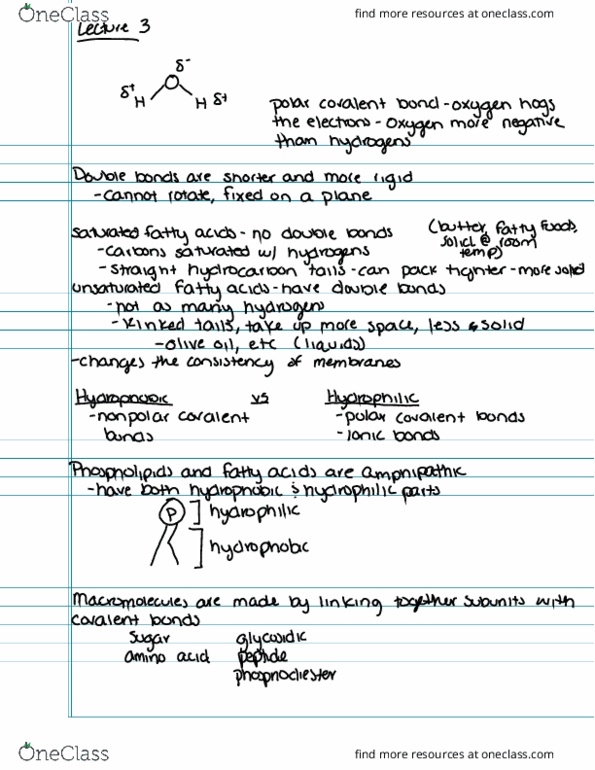 OneClass
find more resources at oneclass.com
Lecture 3
δ-
δ+
H
H
δ+
polar covalent bond - oxygen hogs
the electrons - oxygen more negative
than hydrogens
Double bonds are shorter and more rigid
- cannot rotate, fixed on a plane
saturated fatty acids - no double bonds
(butter, fatty foods,
solid @ room
temp)
- carbons saturated w/ hydrogens
- straight hydrocarbon tails - can pack tighter - more solid
unsaturated fatty acids - have double bonds
- not as many hydrogens
- kinked tails, take up more space, less solid
- olive oil, etc (liquids)
- changes the consistency of membranes
Hydrophobic vs Hydrophilic
- nonpolar covalent
bonds
- polar covalent bonds
- ionic bonds
Phospholipids and fatty acids are amphipathic
- have both hydrophobic & hydrophilic parts
P
hydrophilic
hydrophobic
Macromolecules are made by linking together subunits with
covalent bonds
sugar glycosidic
amino acid peptide
phosphodiester
OneClass
find more resources at oneclass.com